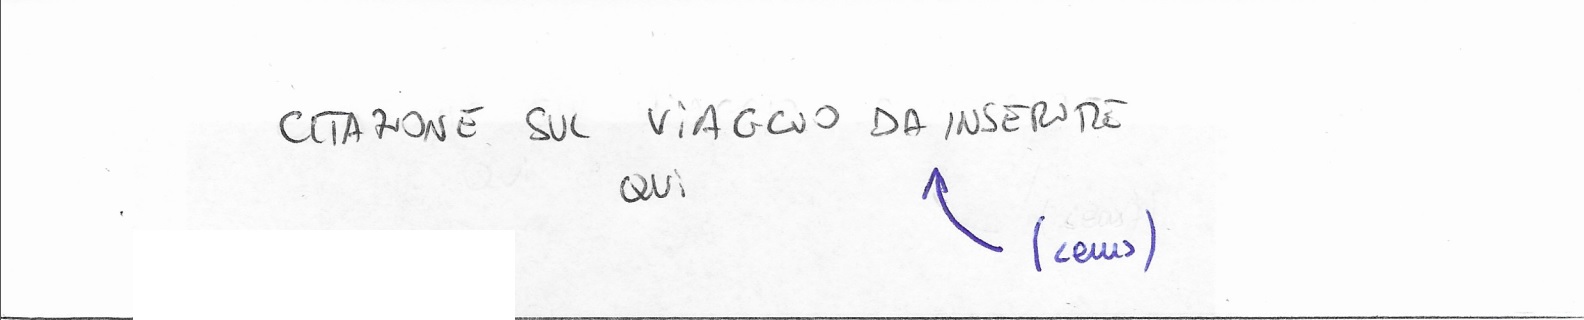 CITAZIONE SUL VIAGGIO DA INSERIRE
QUI